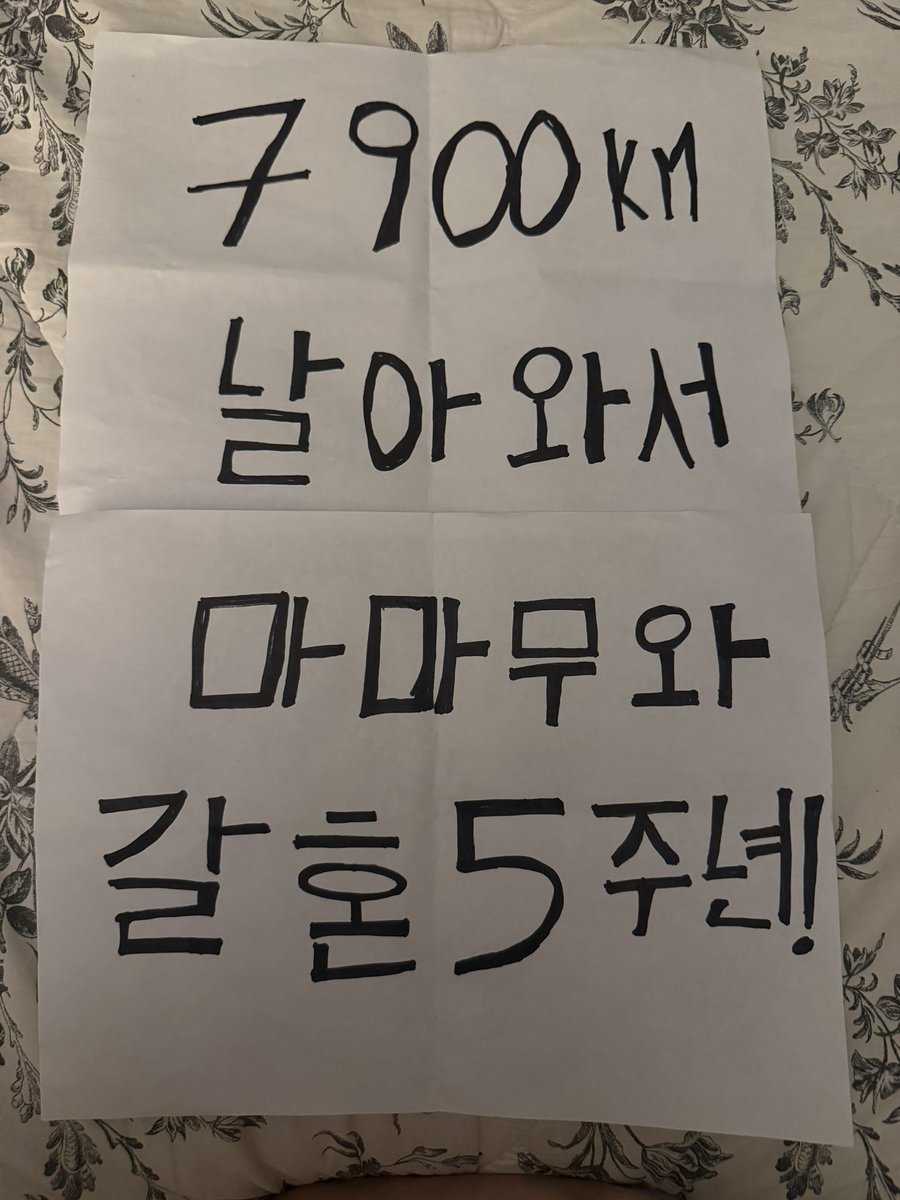 7900KM
날아와서
마마무와
갈혼5주년!